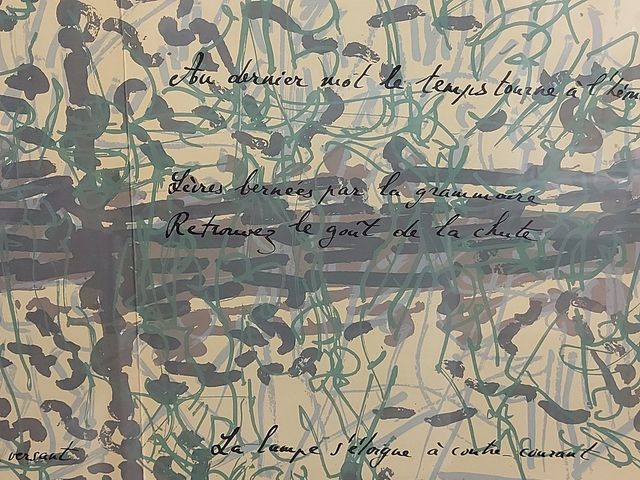 Au dernier mot le temps tourne à
Lèvres bernées par la grammaire
Retrouvez le goût de la chute
versant
La lampe s'éloigne à contre-courant